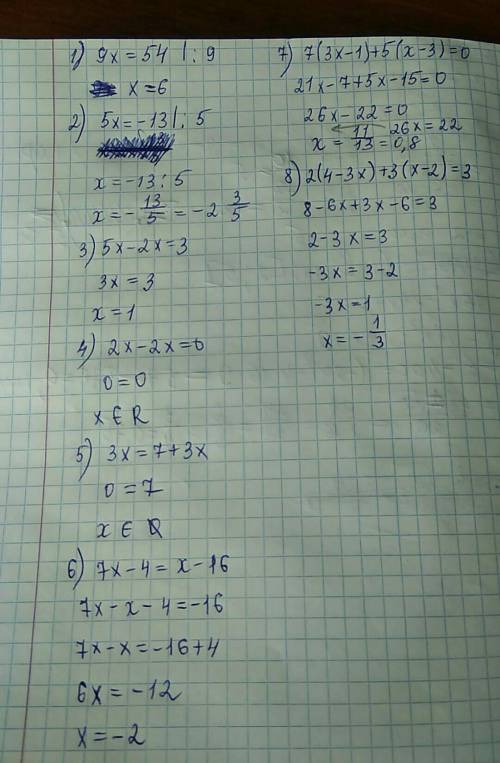 1) 9x=54 |:9
x=6
2) 5x=-13|:5
x=-13:5
x=-13/5=-2 3/5
3) 5x-2x=3
3x=3
x=1
4) 2x-2x=0
0=0
x∈R
5) 3x=7+3x
0=7
x∈
6) 7x-4=x-16
7x-x-4=-16
7x-x=-16+4
6x=-12
x=-2
7) 7(3x-1)+5(x-3)=0
21x-7+5x-15=0
26x-22=0
26x=22
x=11/13=0,8
8) 2(4-3x)+3(x-2)=3
8-6x+3x-6=3
2-3x=3
-3x=3-2
-3x=1
x=-1/3